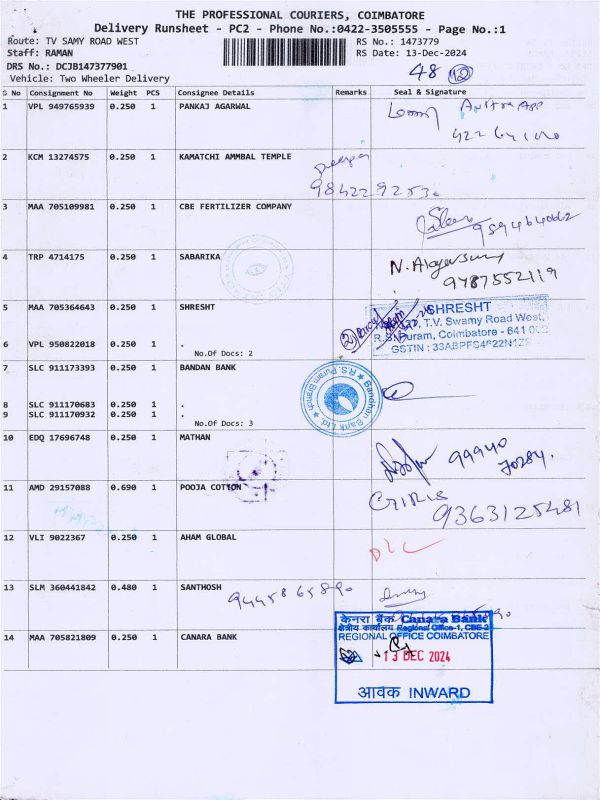 THE PROFESSIONAL COURIERS, COIMBATORE
Delivery Runsheet - PC2 - Phone No.:0422-3505555 - Page No.:1
Route: TV SAMY ROAD WEST RS No.: 1473779
Staff: RAMAN RS Date: 13-Dec-2024
DRS No.: DCJB147377901
Vehicle: Two Wheeler Delivery
48
S No Consignment No Weight PCS Consignee Details Remarks Seal & Signature
1 VPL 949765939 0.250 1 PANKAJ AGARWAL
2 KCM 13274575 0.250 1 KAMATCHI AMMBAL TEMPLE
3 MAA 705109981 0.250 1 CBE FERTILIZER COMPANY
4 TRP 4714175 0.250 1 SABARIKA
9787552119
5 MAA 705364643 0.250 1 SHRESHT
SHRESHT
T.V. Swamy Road West,
R.S. Puram, Coimbatore - 641
6 VPL 950822018 0.250 1 .
GSTIN :
No.Of Docs: 2
7 SLC 911173393 0.250 1 BANDAN BANK
Bandhan Bank Ltd.
R.S. Puram Branch
8 SLC 911170683 0.250 1 .
9 SLC 911170932 0.250 1 .
No.Of Docs: 3
10 EDQ 17696748 0.250 1 MATHAN
99940
70284.
11 AMD 29157088 0.690 1 POOJA COTTON
9363125481
12 VLI 9022367 0.250 1 AHAM GLOBAL
DLC
13 SLM 360441842 0.480 1 SANTHOSH
9445865890
केनरा बैंक Canara Bank
क्षेत्रीय कार्यालय Regional Office-1, CBE-2
14 MAA 705821809 0.250 1 CANARA BANK
REGIONAL OFFICE COIMBATORE
13 DEC 2024
आवक INWARD